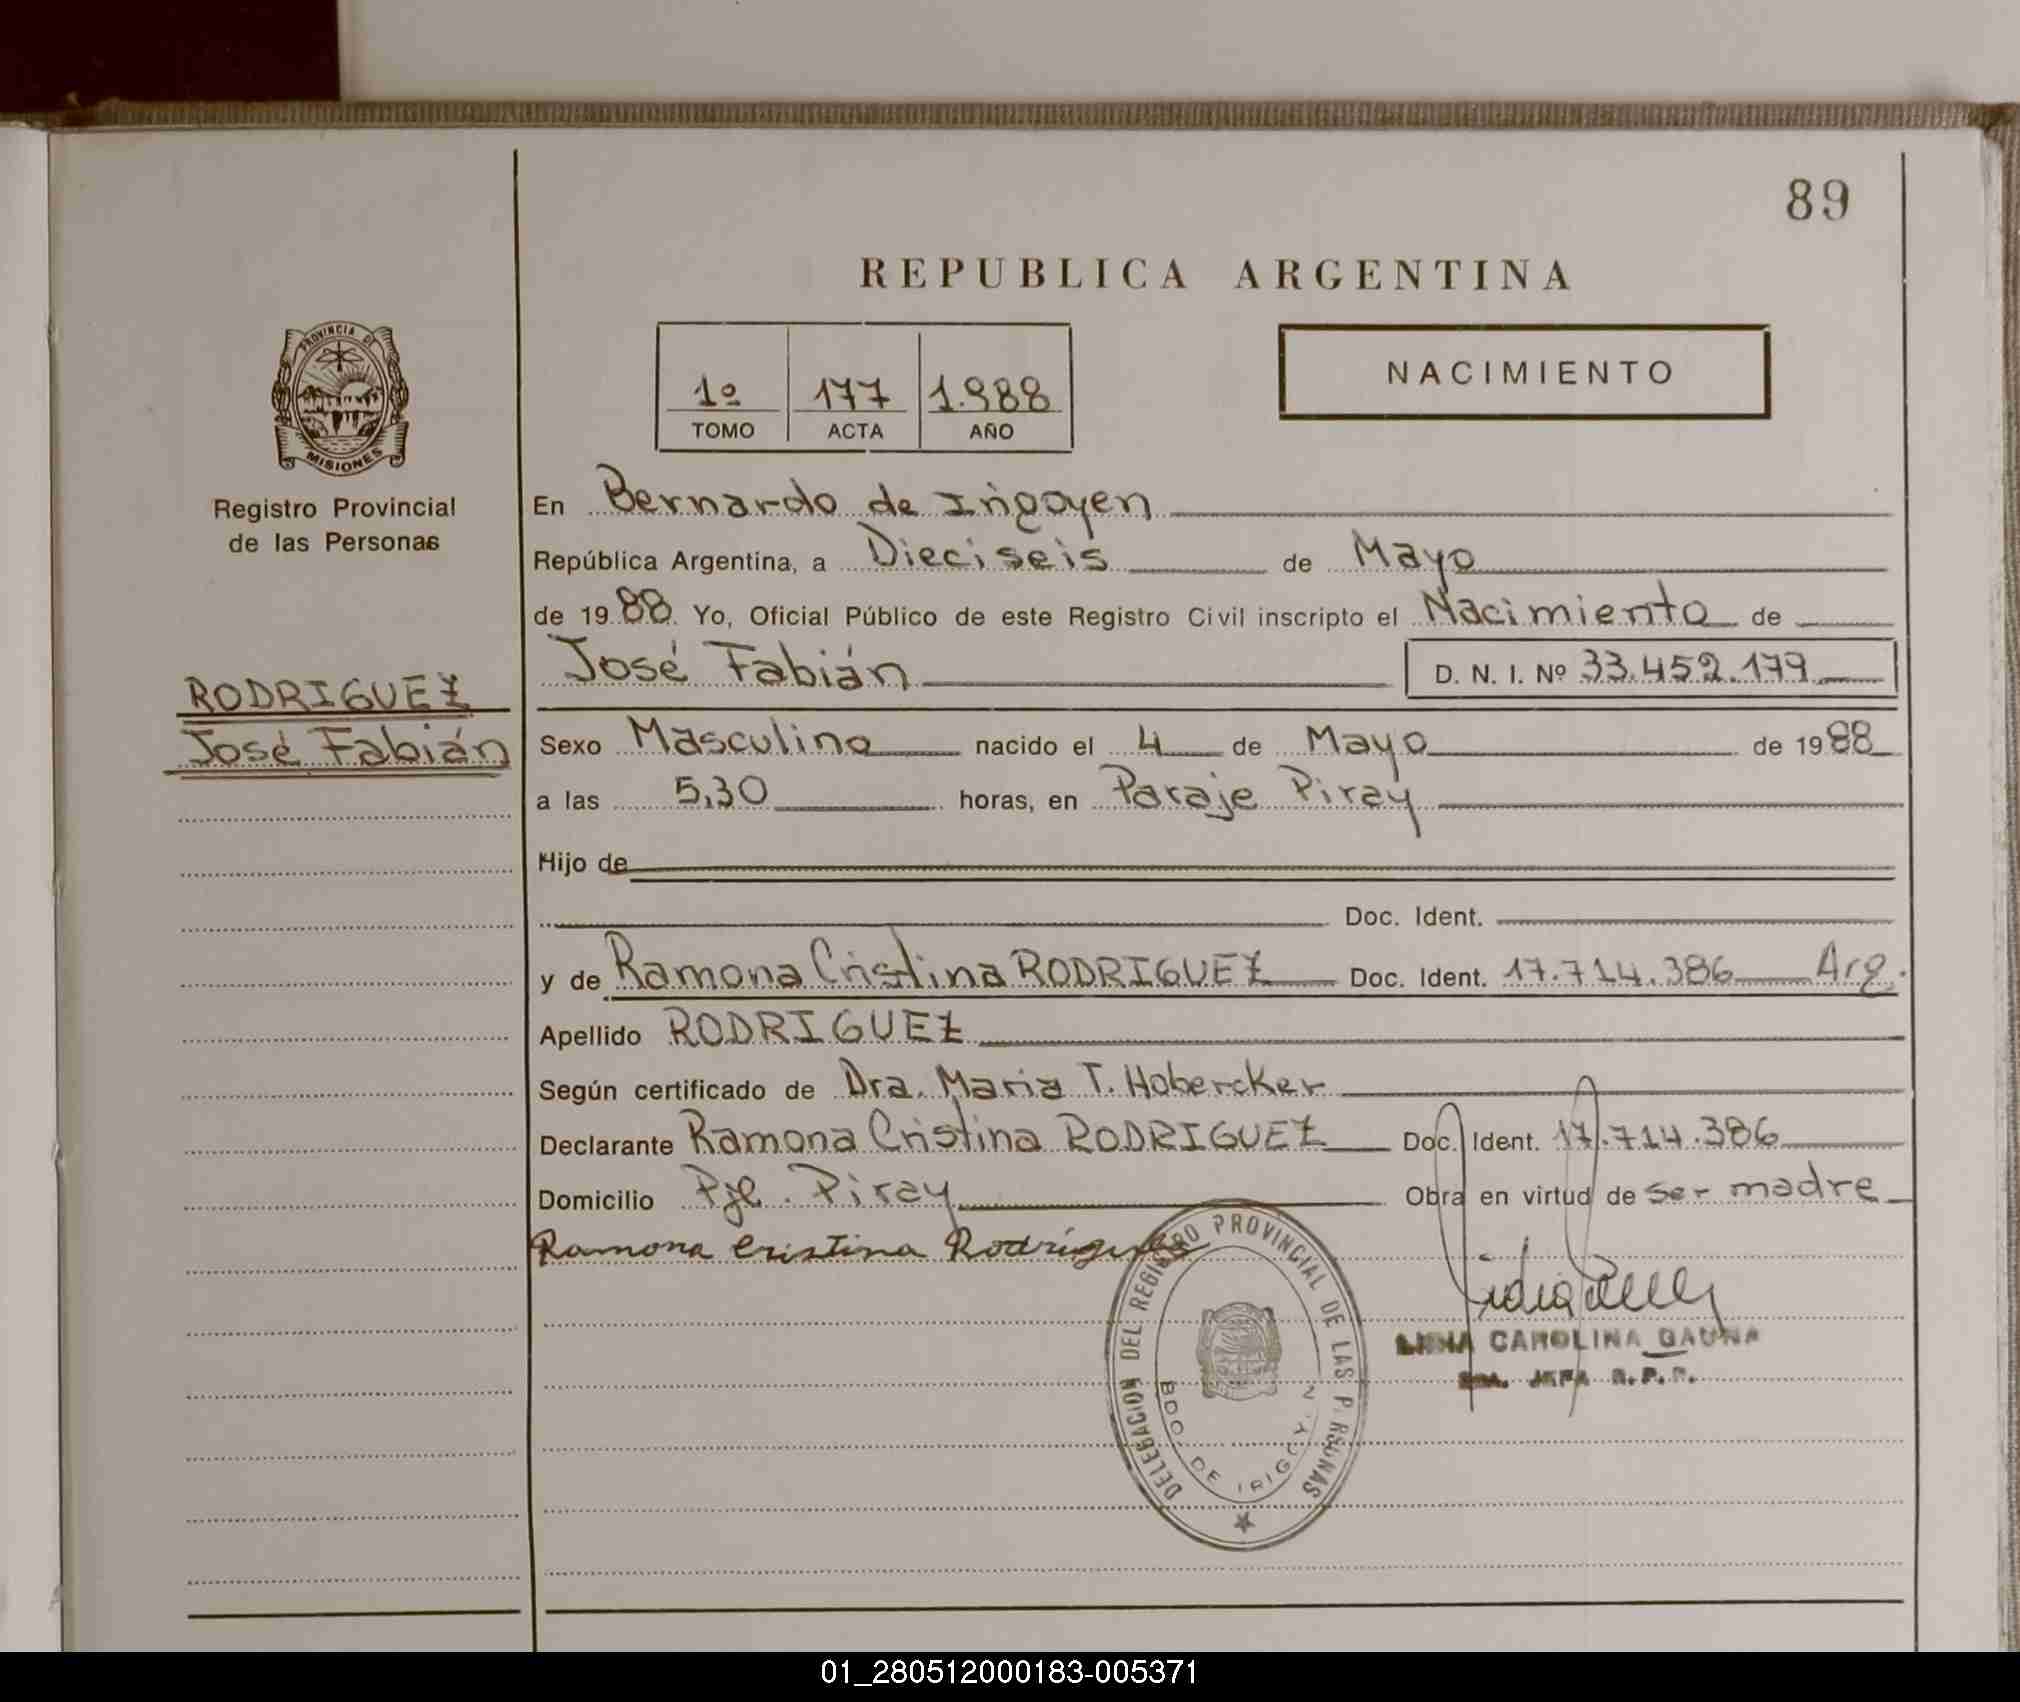 89
REPUBLICA ARGENTINA
PROVINCIA DE
MISIONES
Registro Provincial
de las Personas
1º 177 1.988
TOMO ACTA AÑO
NACIMIENTO
En Bernardo de Irigoyen
República Argentina, a Dieciseis de Mayo
de 19 88 Yo, Oficial Público de este Registro Civil inscripto el Nacimiento de
José Fabián D. N. I. Nº 33.452.179
RODRIGUEZ
José Fabián
Sexo Masculino nacido el 4 de Mayo de 19 88
a las 5,30 horas, en Paraje Piray
Hijo de
Doc. Ident.
y de Ramona Cristina RODRIGUEZ Doc. Ident. 17.714.386 Arg.
Apellido RODRIGUEZ
Según certificado de Dra. Maria T. Hobercker
Declarante Ramona Cristina RODRIGUEZ Doc. Ident. 17.714.386
Domicilio Pje. Piray Obra en virtud de ser madre
Ramona Cristina
DELEGACION DEL REGISTRO PROVINCIAL DE LAS P RSONAS
BDO. DE IRIGOY
CAROLINA GAUNA
JEFA R.P.P.
01_280512000183-005371